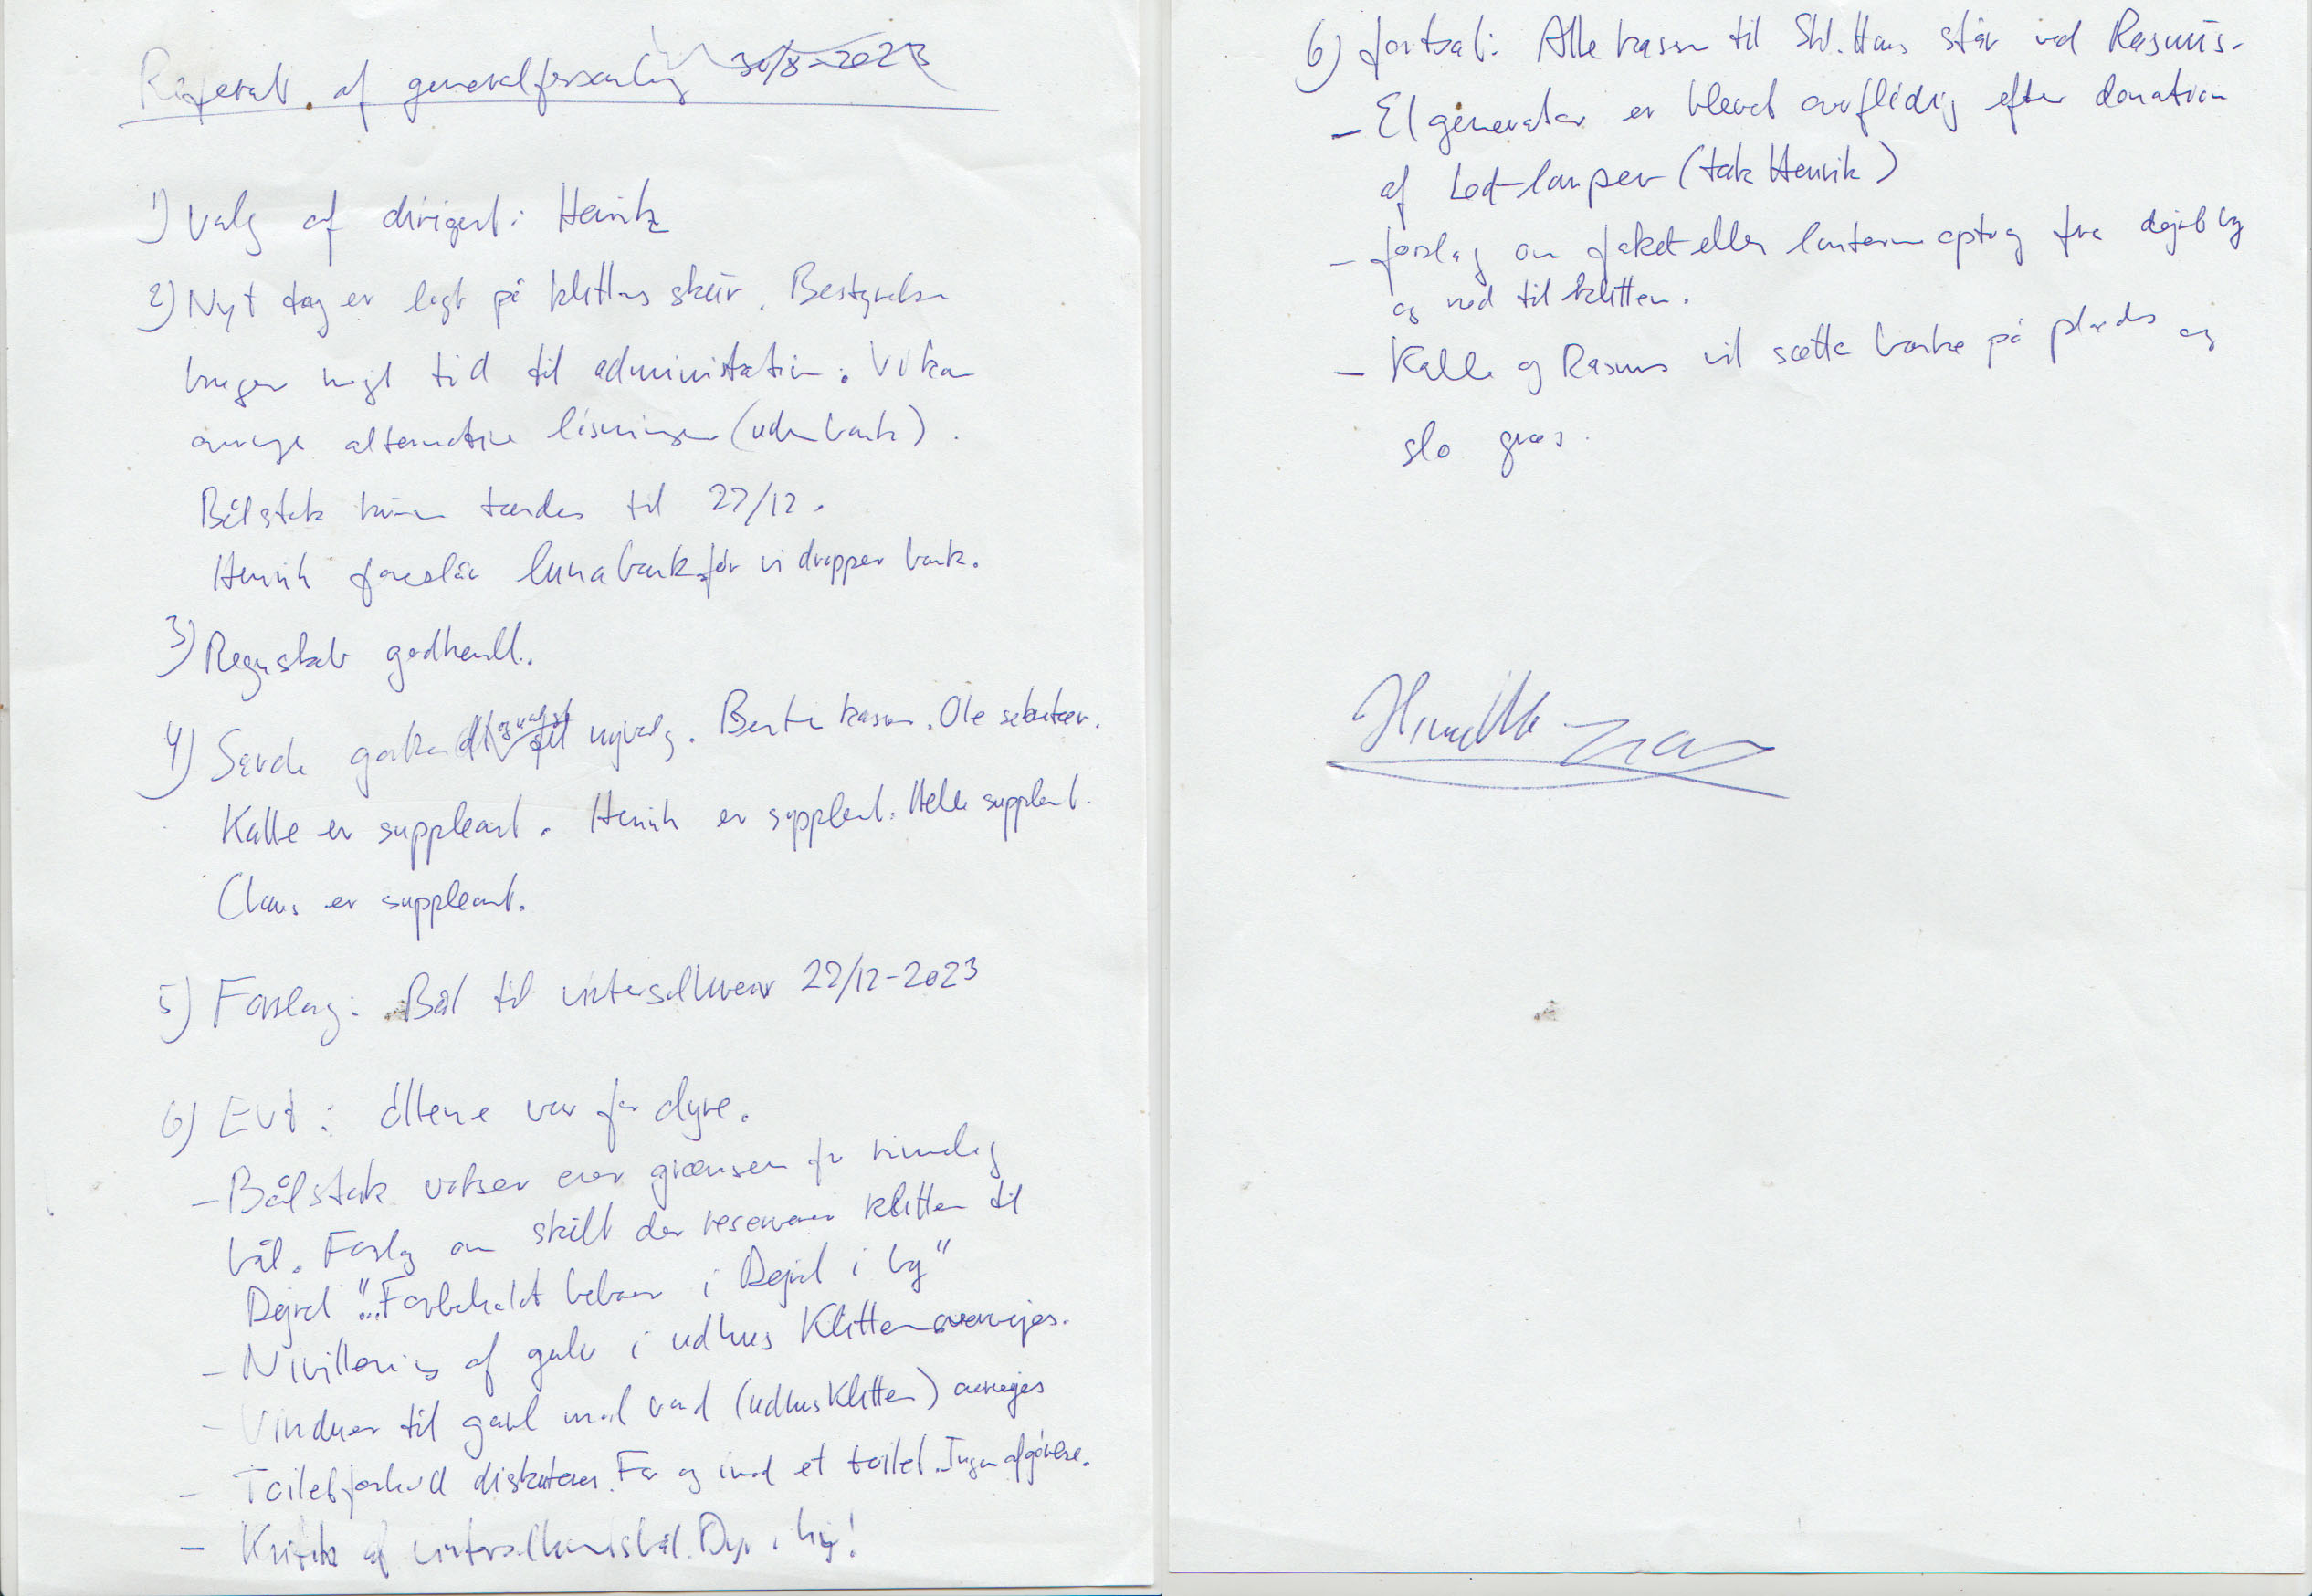 Referat af generalforsamling 30/8-2023
1) Valg af dirigent: Henrik
2) Nyt tag er lagt på klittens skur. Bestyrelsen
bruger meget tid til administration. Vi kan
overveje alternative løsninger (uden bank).
Bålstak kunne tændes til 22/12.
Henrik foreslår lunarbank før vi dropper bank.
3) Regnskab godkendt.
4) godkendt og valgt nyvalg. Bente kasser. Ole sekretær.
Kalle er suppleant. Henrik er suppleant. Helle suppleant.
Claus er suppleant.
5) Forslag: Bål til vintersolhverv 22/12-2023
6) Evt: Øllene var for dyre.
- Bålstak vokser over grænsen for rimelig
bål. Forslag om skilt der reserverer klitten til
Dejret "...Forbeholdt beboer i Dejret i by"
- Nivillering af gulv i udhus Klitten overvejes.
- Vinduer til gavl mod vand (udhus Klitten) overvejes
- Toiletforhold diskuteres. For og imod et toilet. Ingen afgørelse.
- Kritik af vintersolhvervsbål. Dyr i !
6) fortsat: Alle kasser til Skt. Hans står ved Rasmus.
- El generator er blevet overflødig efter donation
af Led-lamper (tak Henrik)
- forslag om fakel eller lanterne optog fra dejret by
og ned til klitten.
- Kalle og Rasmus vil sætte bænke på plads og
slå græs.